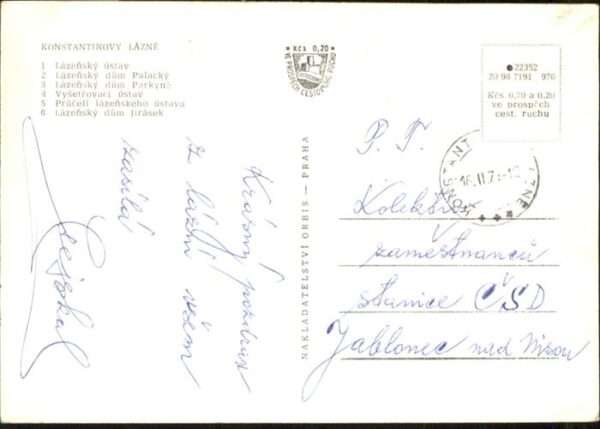 KONSTANTINOVY LÁZNĚ
1 Lázeňský ústav
2 Lázeňský dům Palacký
3 Lázeňský dům Purkyně
4 Vyšetřovací ústav
5 Průčelí lázeňského ústavu
6 Lázeňský dům Jirásek
Kčs 0,20
VE PROSPĚCH CESTOVNÍHO RUCHU
22352
20 98 7191 970
Kčs. 0,70 a 0,20
ve prospěch
cest. ruchu
NAKLADATELSTVÍ ORBIS — PRAHA
Krásný pozdrav
z lázní všem
zasílá
P. T.
Kolektiv
zaměstnanců
stanice ČSD
Jablonec nad Nisou